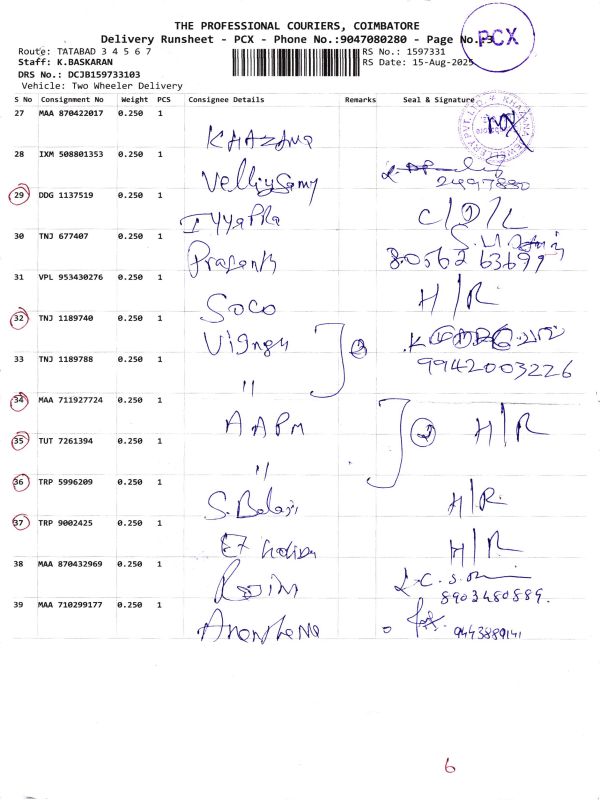 THE PROFESSIONAL COURIERS, COIMBATORE
Delivery Runsheet - PCX - Phone No.:9047080280 - Page No.:3
PCX
Route: TATABAD 3 4 5 6 7
RS No.: 1597331
Staff: K.BASKARAN
RS Date: 15-Aug-2025
DRS No.: DCJB159733103
Vehicle: Two Wheeler Delivery
S No Consignment No Weight PCS Consignee Details Remarks Seal & Signature
27 MAA 870422017 0.250 1 KHAZANA
28 IXM 508801353 0.250 1 Velliysamy
2497880
29 DDG 1137519 0.250 1 Iyyappa C/D/L
30 TNJ 677407 0.250 1 Prasanth
80562 63699
31 VPL 953430276 0.250 1 Soco H/R
32 TNJ 1189740 0.250 1 Vignesh 2
33 TNJ 1189788 0.250 1 "
9942003226
34 MAA 711927724 0.250 1 AAPM 2 H/R
35 TUT 7261394 0.250 1 "
36 TRP 5996209 0.250 1 S. Balaji H/R
37 TRP 9002425 0.250 1 H/R
38 MAA 870432969 0.250 1
8903480889.
39 MAA 710299177 0.250 1
9443889141
6